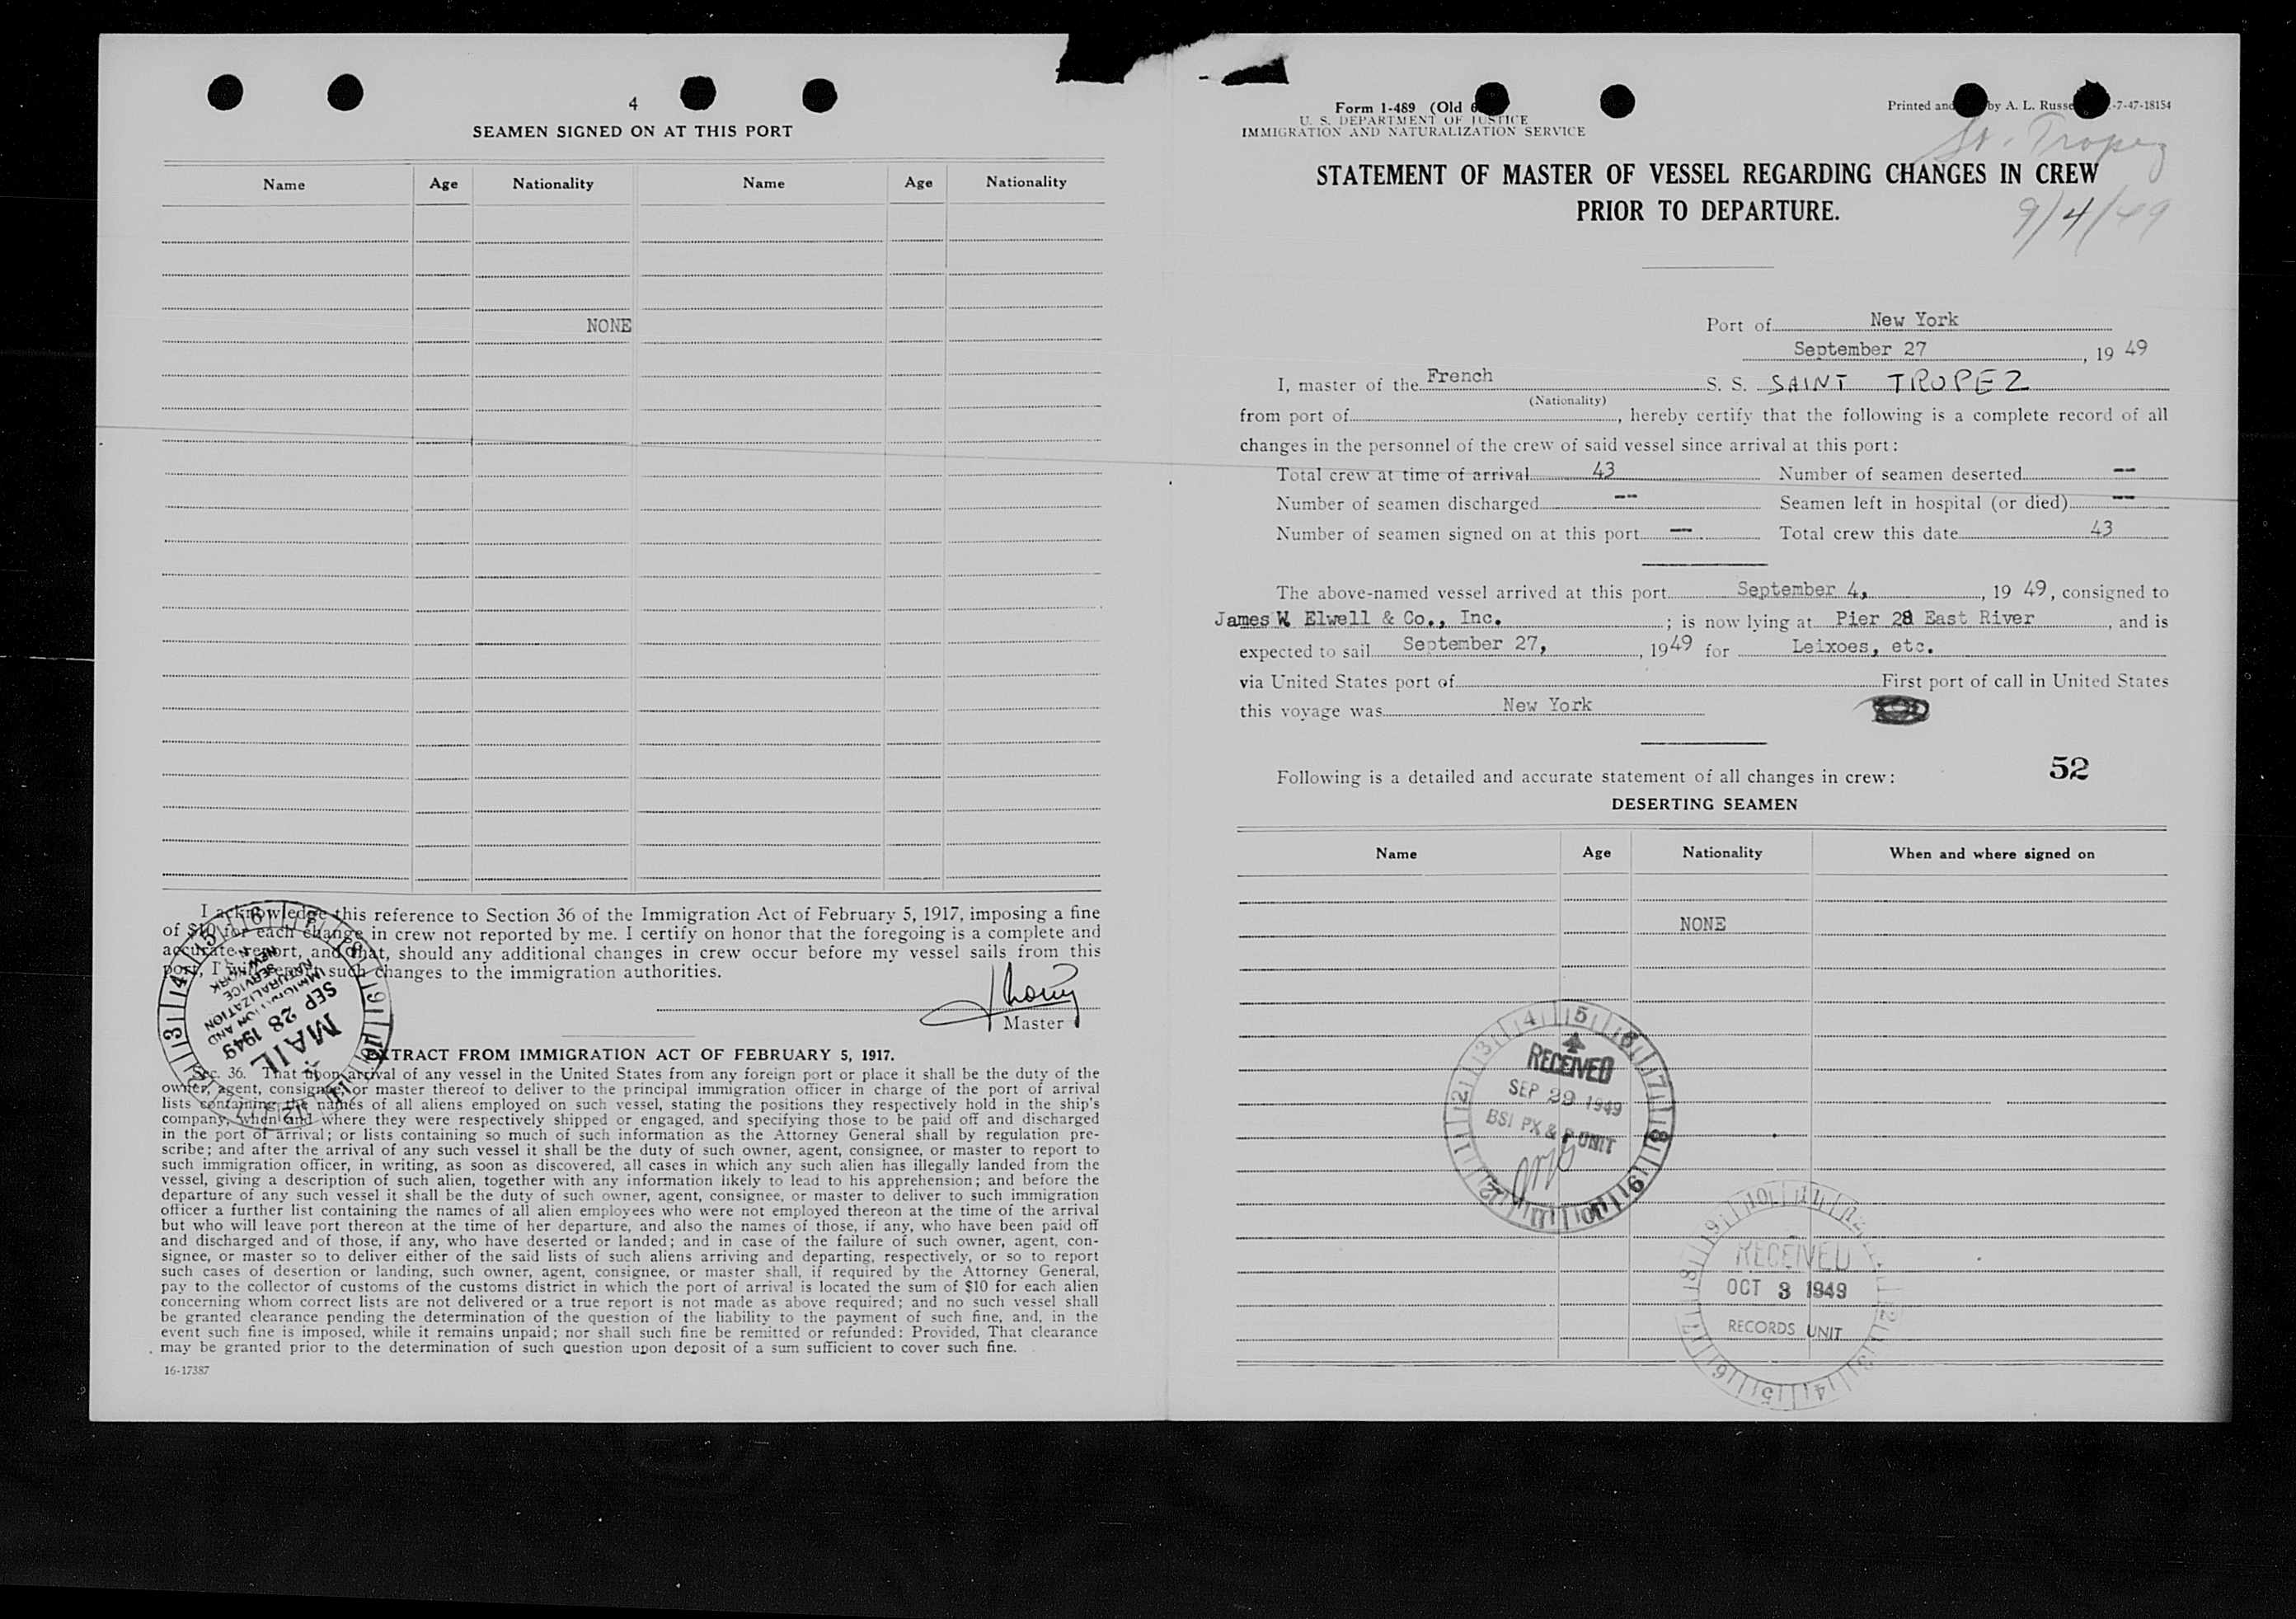 4
SEAMEN SIGNED ON AT THIS PORT
Name Age Nationality Name Age Nationality
NONE
I acknowledge this reference to Section 36 of the Immigration Act of February 5, 1917, imposing a fine
of $10 for each change in crew not reported by me. I certify on honor that the foregoing is a complete and
accurate report, and that, should any additional changes in crew occur before my vessel sails from this
port, I will report such changes to the immigration authorities.
Master
MAIL
SEP 28 1949
IMMIGRATION AND
NATURALIZATION
SERVICE
NEW YORK
EXTRACT FROM IMMIGRATION ACT OF FEBRUARY 5, 1917.
Sec. 36. That upon arrival of any vessel in the United States from any foreign port or place it shall be the duty of the
owner, agent, consignee, or master thereof to deliver to the principal immigration officer in charge of the port of arrival
lists containing the names of all aliens employed on such vessel, stating the positions they respectively hold in the ship's
company, when and where they were respectively shipped or engaged, and specifying those to be paid off and discharged
in the port of arrival; or lists containing so much of such information as the Attorney General shall by regulation pre-
scribe; and after the arrival of any such vessel it shall be the duty of such owner, agent, consignee, or master to report to
such immigration officer, in writing, as soon as discovered, all cases in which any such alien has illegally landed from the
vessel, giving a description of such alien, together with any information likely to lead to his apprehension; and before the
departure of any such vessel it shall be the duty of such owner, agent, consignee, or master to deliver to such immigration
officer a further list containing the names of all alien employees who were not employed thereon at the time of the arrival
but who will leave port thereon at the time of her departure, and also the names of those, if any, who have been paid off
and discharged and of those, if any, who have deserted or landed; and in case of the failure of such owner, agent, con-
signee, or master so to deliver either of the said lists of such aliens arriving and departing, respectively, or so to report
such cases of desertion or landing, such owner, agent, consignee, or master shall, if required by the Attorney General,
pay to the collector of customs of the customs district in which the port of arrival is located the sum of $10 for each alien
concerning whom correct lists are not delivered or a true report is not made as above required; and no such vessel shall
be granted clearance pending the determination of the question of the liability to the payment of such fine, and, in the
event such fine is imposed, while it remains unpaid; nor shall such fine be remitted or refunded: Provided, That clearance
may be granted prior to the determination of such question upon deposit of a sum sufficient to cover such fine.
16-17387
Form 1-489 (Old
U. S. DEPARTMENT OF JUSTICE
IMMIGRATION AND NATURALIZATION SERVICE
Printed and by A. L. Russe -7-47-18154
St. Tropez
9/4/49
STATEMENT OF MASTER OF VESSEL REGARDING CHANGES IN CREW
PRIOR TO DEPARTURE.
Port of New York
September 27, 19 49
I, master of the French S. S. SAINT TROPEZ
(Nationality)
from port of , hereby certify that the following is a complete record of all
changes in the personnel of the crew of said vessel since arrival at this port:
Total crew at time of arrival 43 Number of seamen deserted --
Number of seamen discharged -- Seamen left in hospital (or died) --
Number of seamen signed on at this port -- Total crew this date 43
The above-named vessel arrived at this port September 4, , 19 49, consigned to
James W. Elwell & Co., Inc. ; is now lying at Pier 28 East River , and is
expected to sail September 27, , 19 49 for Leixoes, etc.
via United States port of First port of call in United States
this voyage was New York
Following is a detailed and accurate statement of all changes in crew: 52
DESERTING SEAMEN
Name Age Nationality When and where signed on
NONE
RECEIVED
SEP 29 1949
BSI PX & P UNIT
RECEIVED
OCT 3 1949
RECORDS UNIT